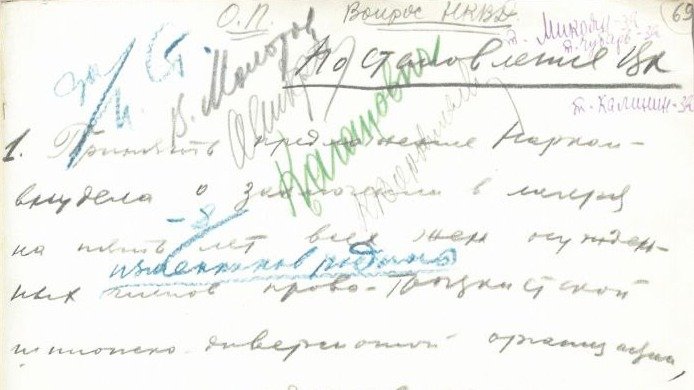 О.П. Вопрос НКВД
69
т. Микоян-за
т. Чубарь-за
Постановление ЦК
т. Калинин-за
за
И. Ст.
В. Молотов
Каганович
К Ворошилов
1. Принять предложение Нарком-
внудела о заключении в лагеря
-8
на пять лет всех жен осужден-
изменников родины
ных членов право-троцкистской
шпионско-диверсионной организации,